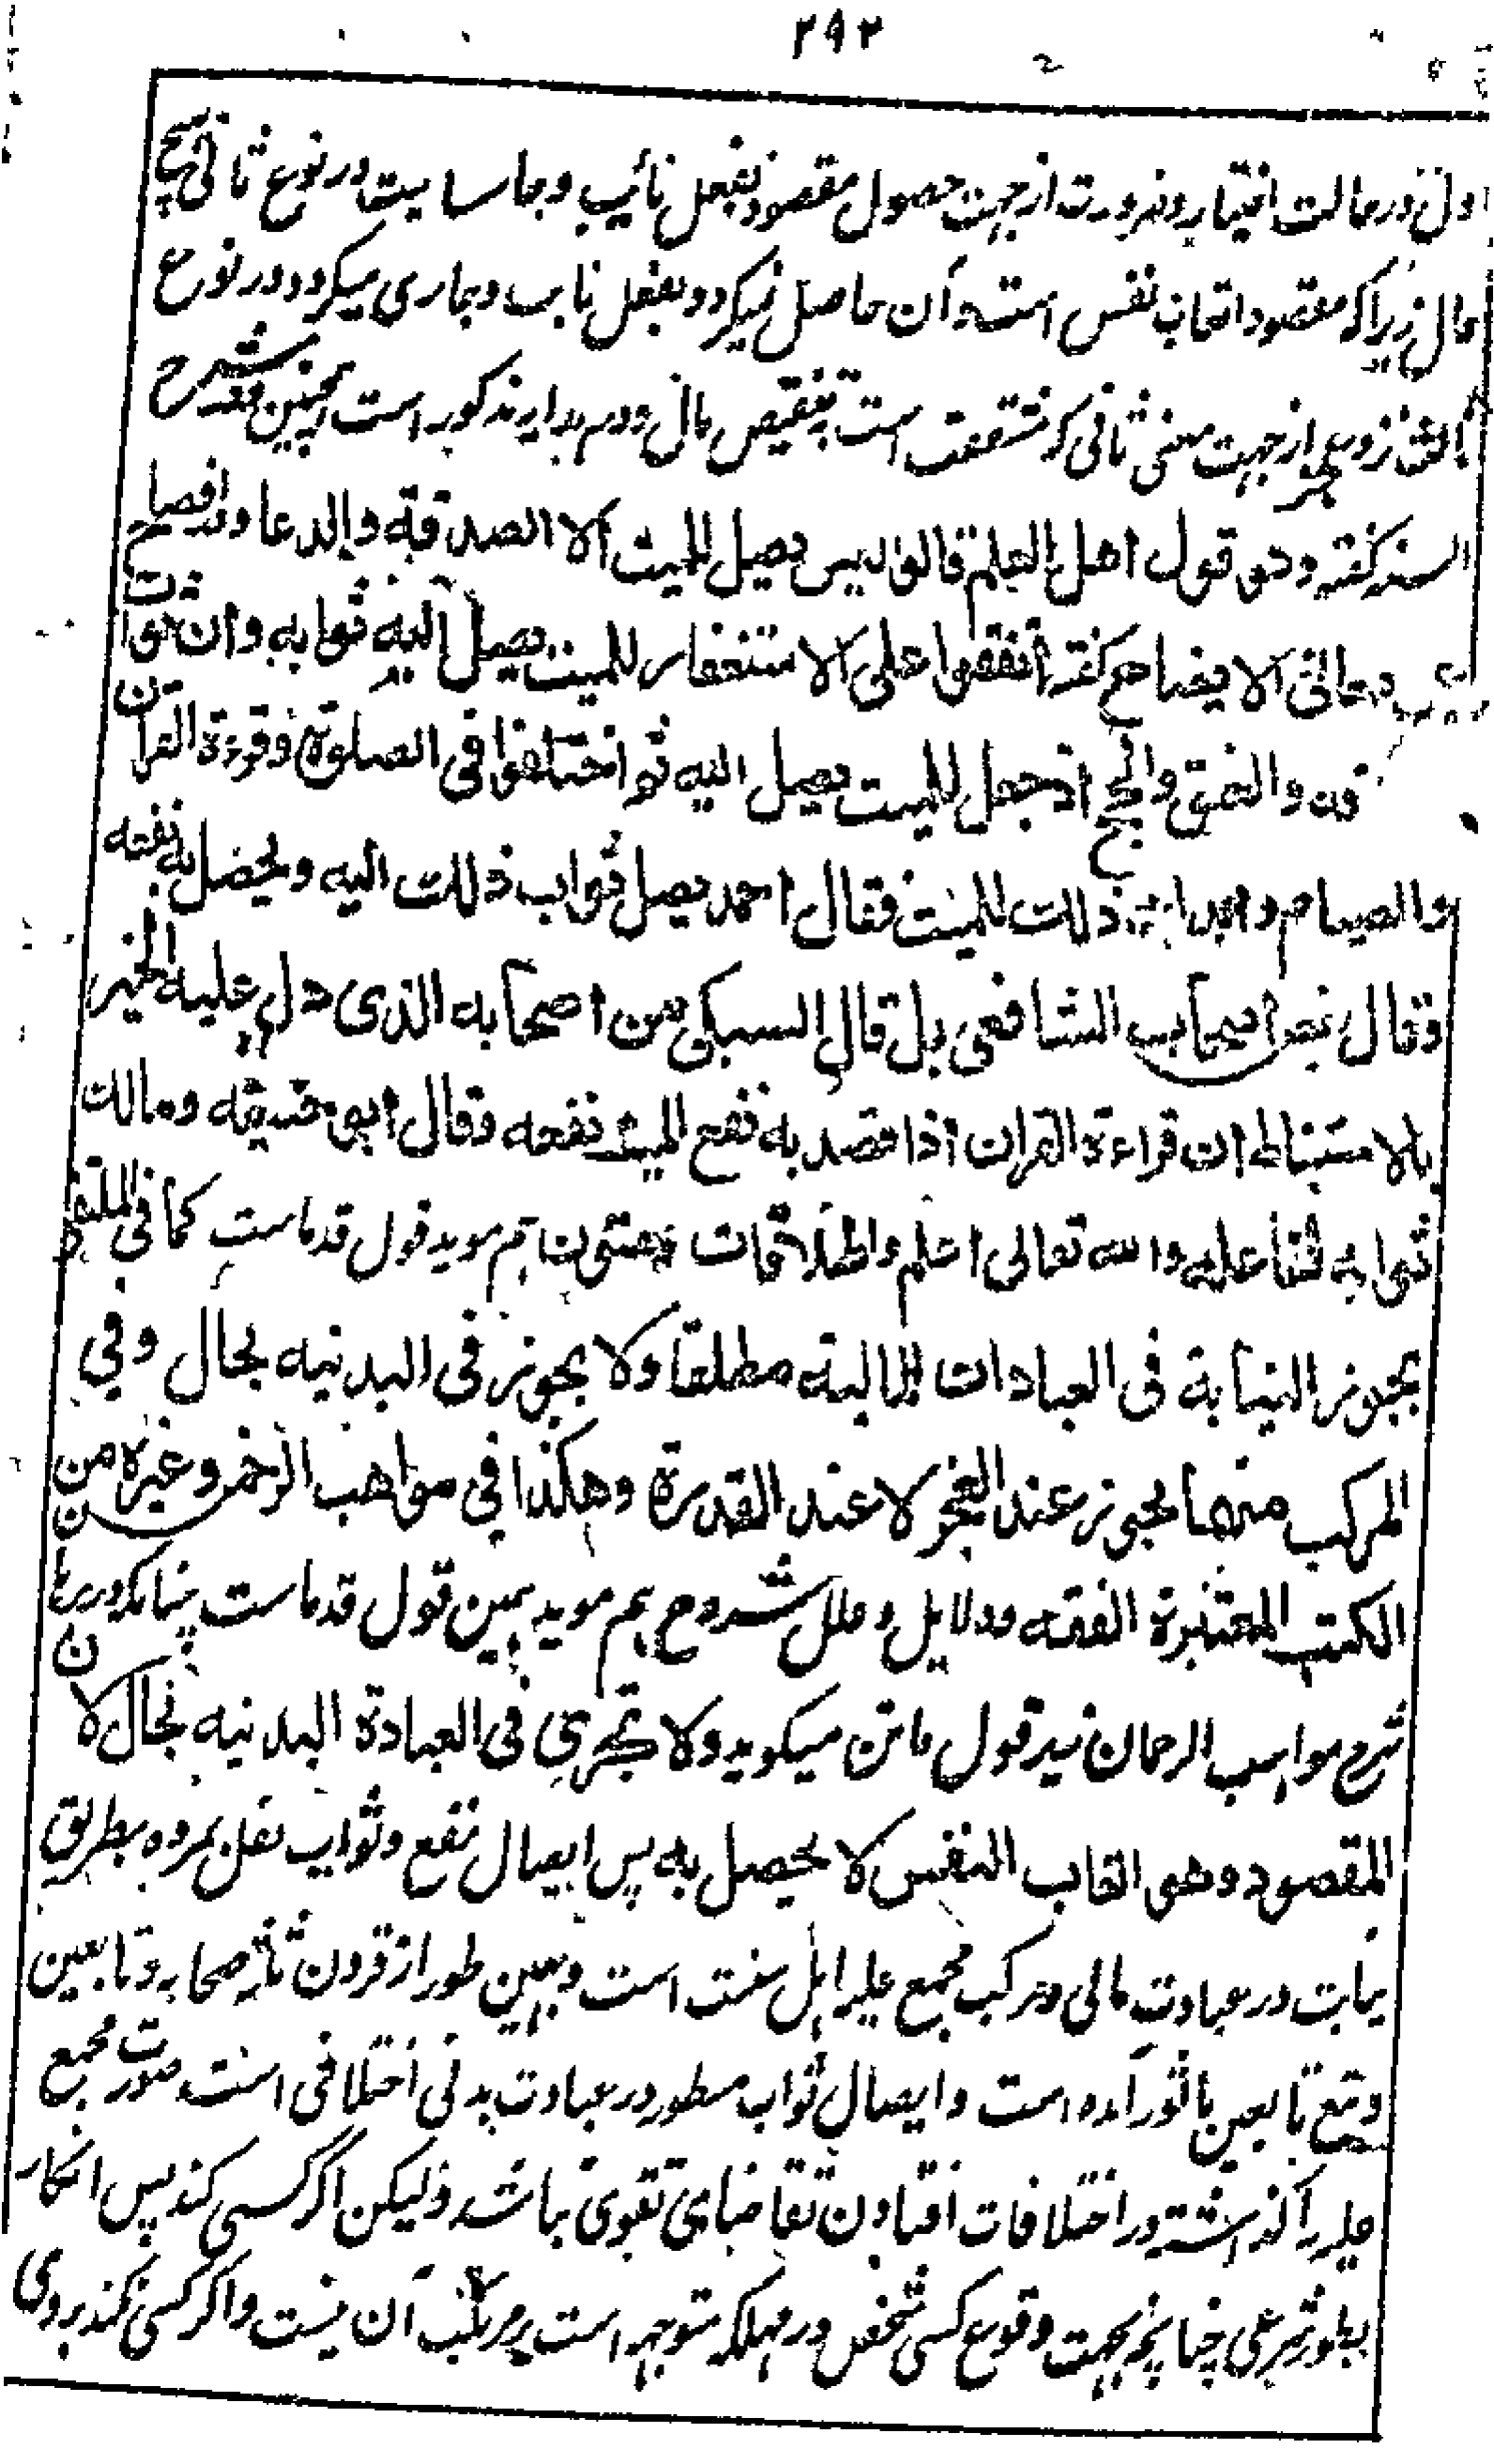 ٢٩٢
اول در حالت اختیار و ضرورت از جهت حصول مقصود بفعل نائب و جاری نیست در نوع ثانی هیچ
حال زیرا که مقصود اتعاب نفس است و آن حاصل نمیگردد بفعل نایب و جاری میگردد در نوع
ثالث نزد عجز از جهت معنی ثانی که مشقت است بتنقیص مال در هدایه مذکور است همچنین در شرح
السنه گفته وهو قول اهل العلم قالوا لیس یصل للمیت الا الصدقة والدعا ودر افصاح
معانی الایضاح گفته اتفقوا على الاستغفار للمیت یصل الیه ثوابه وان ثواب
والعتق والحج اذا جعل للمیت یصل الیه ثم اختلفوا فی الصلوة وقرءة القرآن
والصیام واهداء ذلك للمیت فقال احمد یصل ثواب ذلك الیه ویحصل به نفعه
وقال بعض اصحاب الشافعی بل قال السبکی من اصحابه الذی دل علیه الخبر
بالاستنباط ان قراءة القران اذا قصد به نفع المیت نفعه وقال ابو حنیفه ومالك
ثوابه لفاعله والله تعالى اعلم واطلاقات متون هم موید قول قدماست کما فی الملتقی
یجوز النیابة فی العبادات المالیة مطلقا ولا یجوز فی البدنیه بحال وفی
المرکب منهما یجوز عند العجز لا عند القدرة وهکذا فی مواهب الرحمن وغیره من
الکتب المعتبرة الفقه ودلایل و علل شروح هم موید همین قول قدماست چنانکه در برهان
شرح مواهب الرحمان زیر قول ماتن میگوید ولا تجری فی العبادة البدنیه بحال لان
المقصود وهو اتعاب النفس لا یحصل به پس ایصال نفع و ثواب نفل بمرده بطریق
نیابت در عبادت مالی و مرکب مجمع علیه اهل سنت است و همین طور از قرون ثلثه صحابه و تابعین
و تبع تابعین ماثور آمده است و ایصال ثواب مسطور در عبادت بدنی اختلافی است صورت مجمع
علیه را گذاشته در اختلافات افتادن تقاضای تقوی نباشد ولیکن اگر کسی کند پس انکار
بطور شرعی چنانچه بجهت وقوع کسی شخص در مهلکه متوجه است بر مرتکب آن نیست و اگر کسی نکند بروی